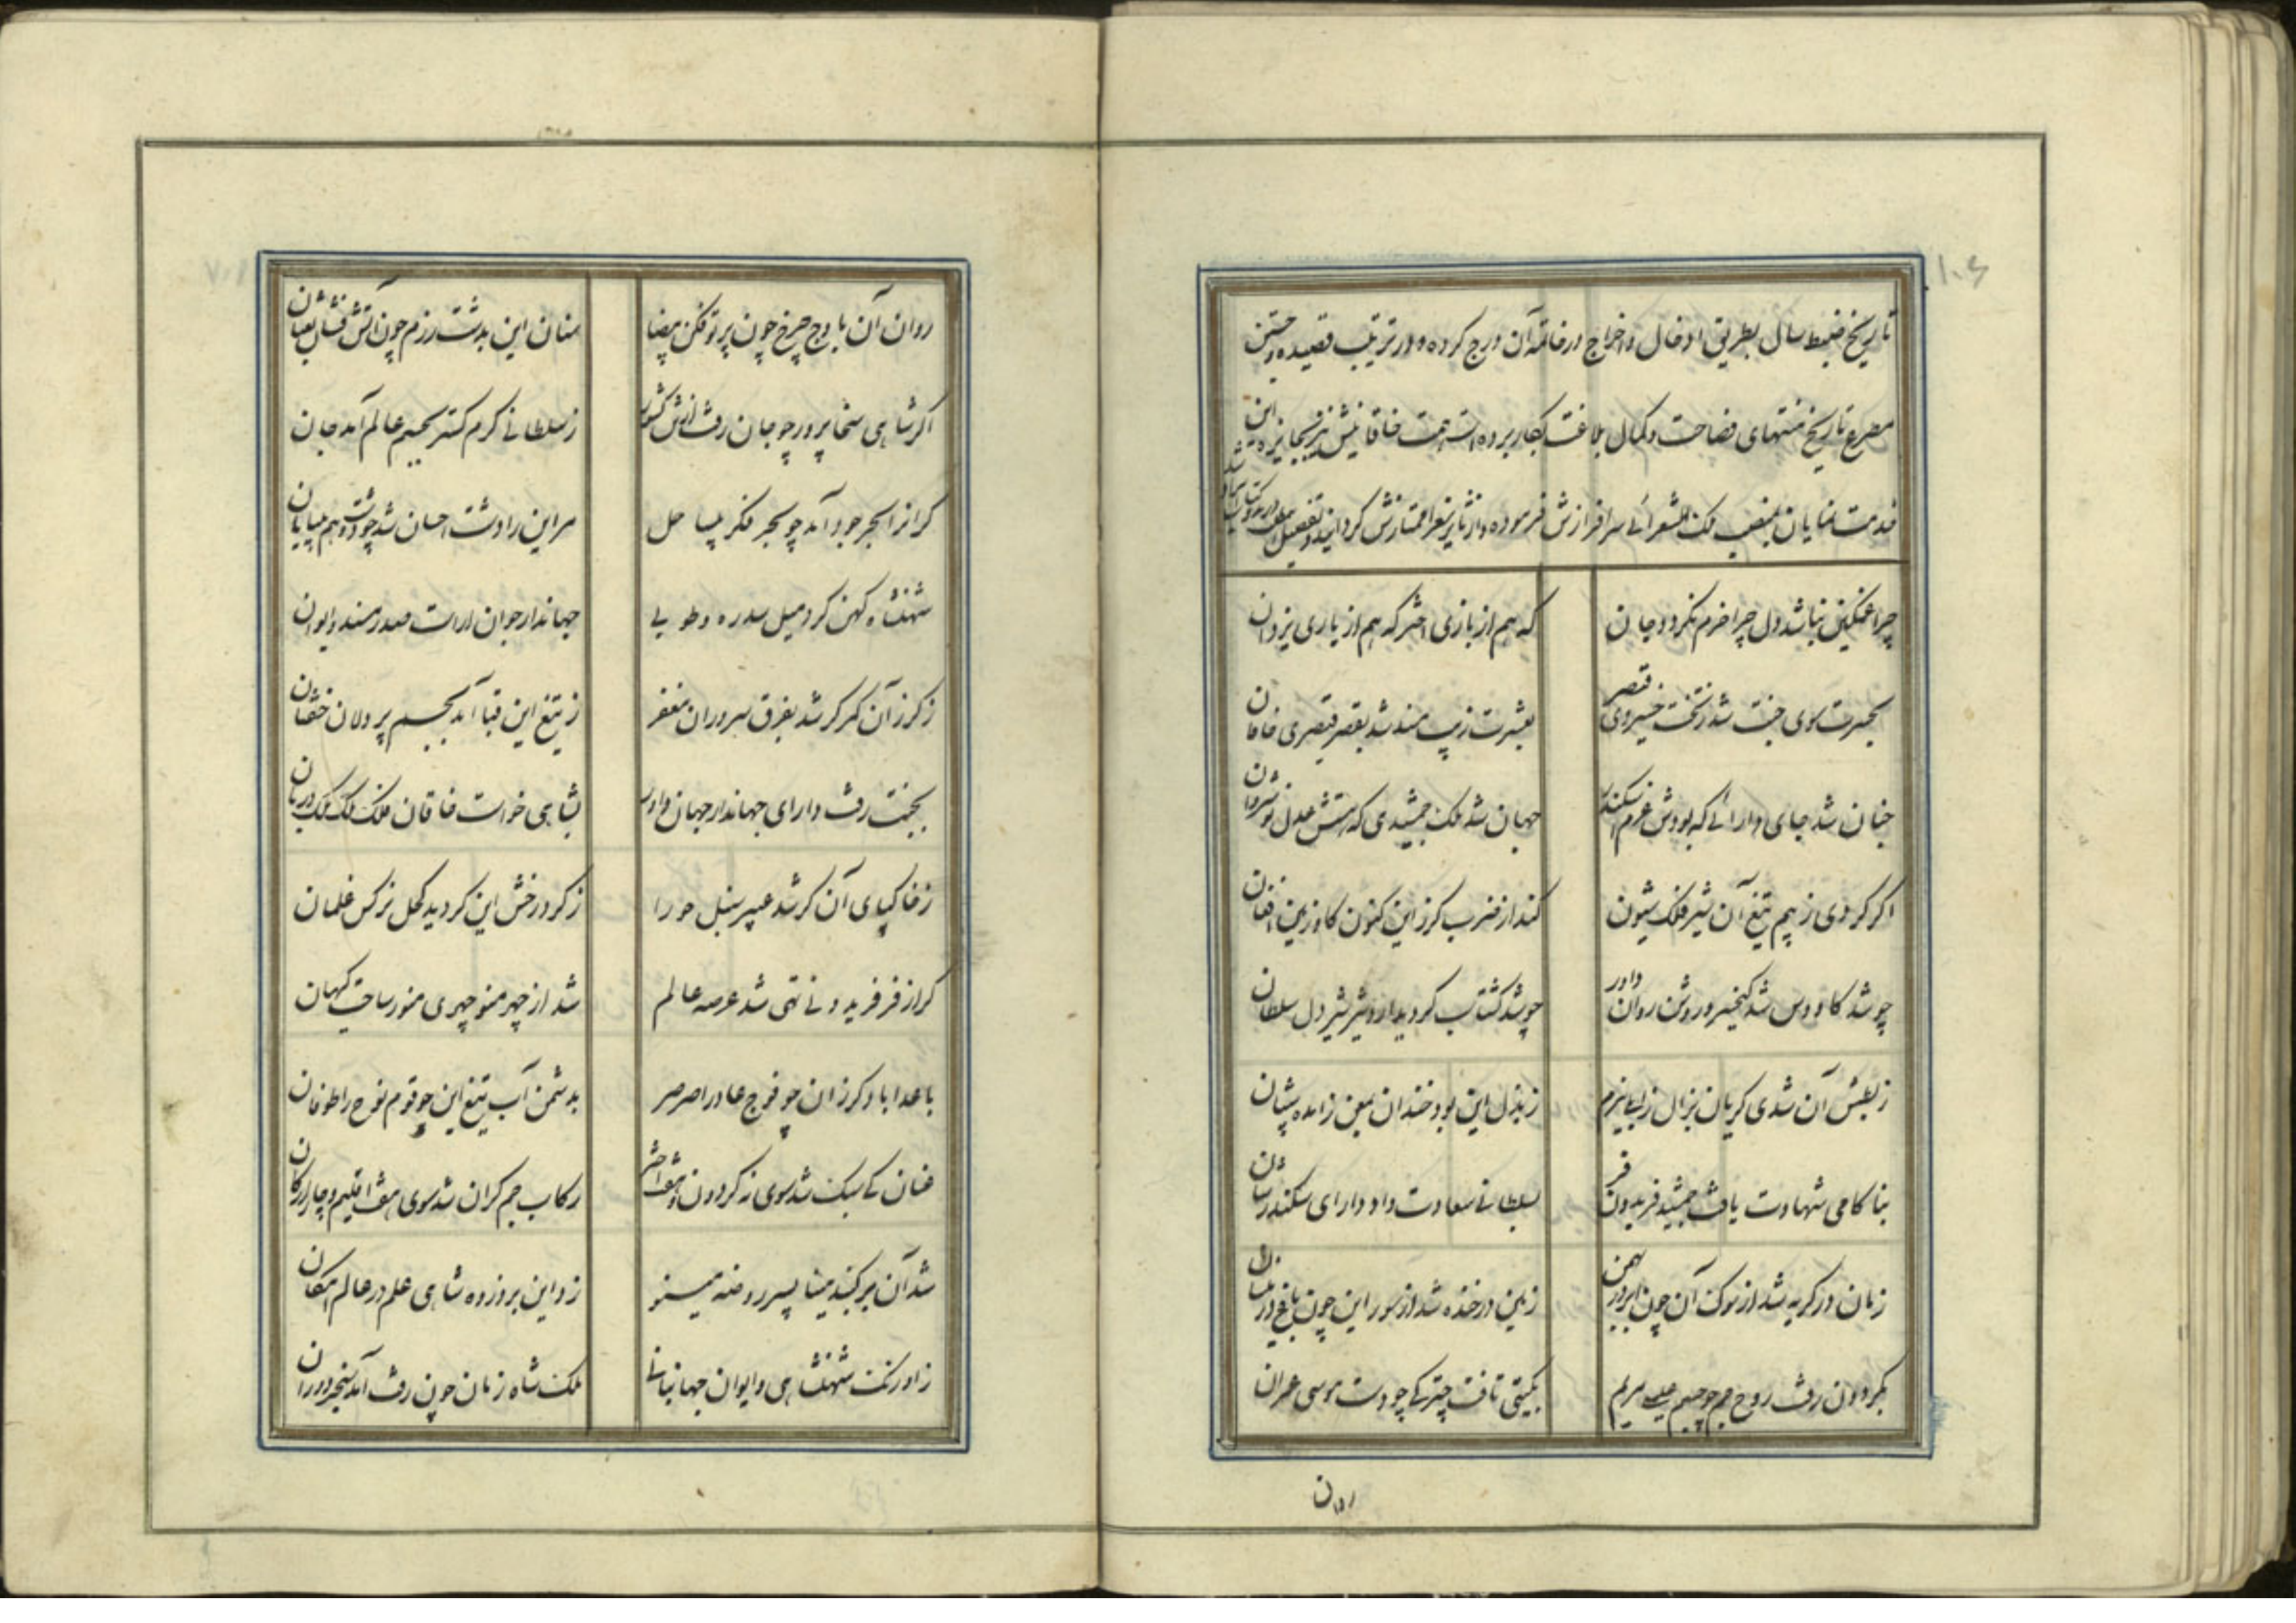 تاریخ ضبط سال بطریق ادخال و اخراج در خاتمه آن درج کرده و در ترتیب قصیده و جستن
مصرع تاریخ منتهای فصاحت و کمال بلاغت بکار برده است همت خاقانیش نیز بجایزه این
خدمت نمایان بمنصب ملک الشعرائی سرافرازش فرموده و از سایر شعرا ممتازش گردانید و تفصیل
چرا غمگین نباشد دل چرا خرم نگردد جان
که هم از بازی اختر که هم از یاری یزدان
بحسرت سوی جنت شد ز تخت خسروی قیصر
بعشرت زیب مسند شد بقصر قیصری خاقان
جنان شد جای دارائی که بودش عزم اسکندر
جهان شد ملک جمشیدی که هستش عدل نوشروان
اگر کردی ز بیم تیغ آن شیر فلک شیون
کند از ضرب گرز این کنون گاو زمین افغان
چو شد کاووس شد کیخسرو روشن روان داور
چو شد گشتاسب گردید اردشیر شیردل سلطان
ز بطش آن شدی گریان
ز بذل این بود خندان بمعن زائده
بناکامی شهادت یافت جمشید فریدون فر
بسلطانی سعادت داد دارای سکندر شان
زمان در گریه شد از سوک آن چون ابر در بهمن
زمین در خنده شد از سور این چون باغ در نیسان
بگردون رفت روح جم چو جسم عیسی مریم
بگیتی تافت چتر کی چو دست موسی عمران
روان
روان آن باوج چرخ چون پرتوفکن بیضا
سنان این بدشت رزم چون آتش فشان ثعبان
اگر شاهی سخاپرور چو جان رفت از تن کشور
ز سلطانی کرم گستر بجسم عالم آمد جان
گر آنرا بحر جود آمد چو بحر فکر بیساحل
مر این را دشت احسان شد چو دشت وهم بیپایان
شهنشاه کهن کرد میل سدره و طوبی
جهاندار جوان آراست صدر مسند و ایوان
ز گرز آن گمر گر شد بفرق سروران مغفر
ز تیغ این قبا آمد بجسم پردلان خفتان
بجنت رفت دارای جهاندار جهان داور
بشاهی خواست خاقان فلک ملک ملک دربان
ز خاک پای آن گر شد عبیر سنبل حورا
ز گرد رخش این گردید کحل نرگس غلمان
گر از فر فریدونی تهی شد عرصه عالم
شد از چهر منوچهری منور ساحت کیهان
باعدا باد گرز آن چو فوج عاد را صرصر
بدشمن آب تیغ این چو قوم نوح را طوفان
عنان کی سبک شد سوی نه گردون و هفت اختر
رکاب جم گران شد سوی هفت اقلیم و چار ارکان
شد آن بر گنبد مینا بسیر روضه مینو
زد این بر وزده شاهی علم در عالم امکان
ز اورنگ شهنشاهی و ایوان جهانبانی
ملک شاه زمان چون رفت آمد سنجر دوران